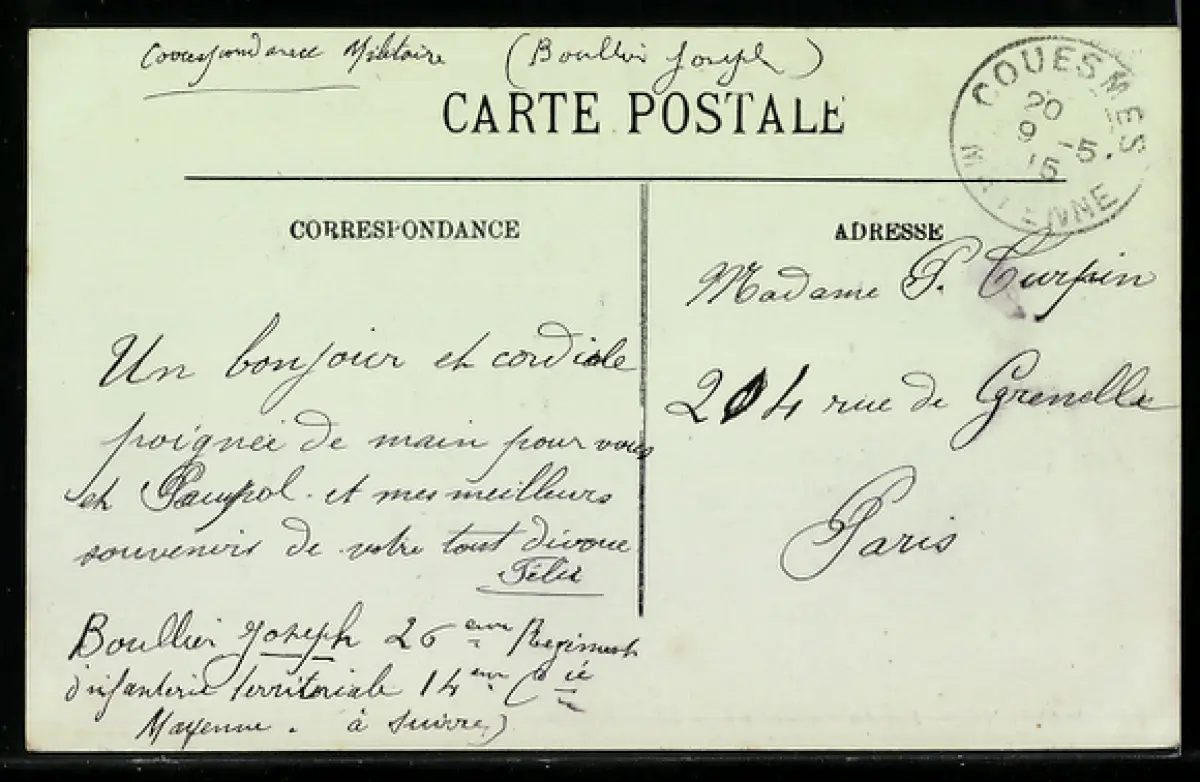 Correspondance Militaire (Boullier Joseph)
CARTE POSTALE
COUESMES
20
9 -5.
15
MAYENNE
CORRESPONDANCE
ADRESSE
Madame P. Turpin
214 rue de Grenelle
Paris
Un bonjour et cordiale
poignée de main pour vous
et Paupol. et mes meilleurs
souvenirs de votre tout dévoué
Félix
Boullier Joseph 26 eme Regiment
d'infanterie Territoriale 14 eme Cie
Mayenne. à suivre)